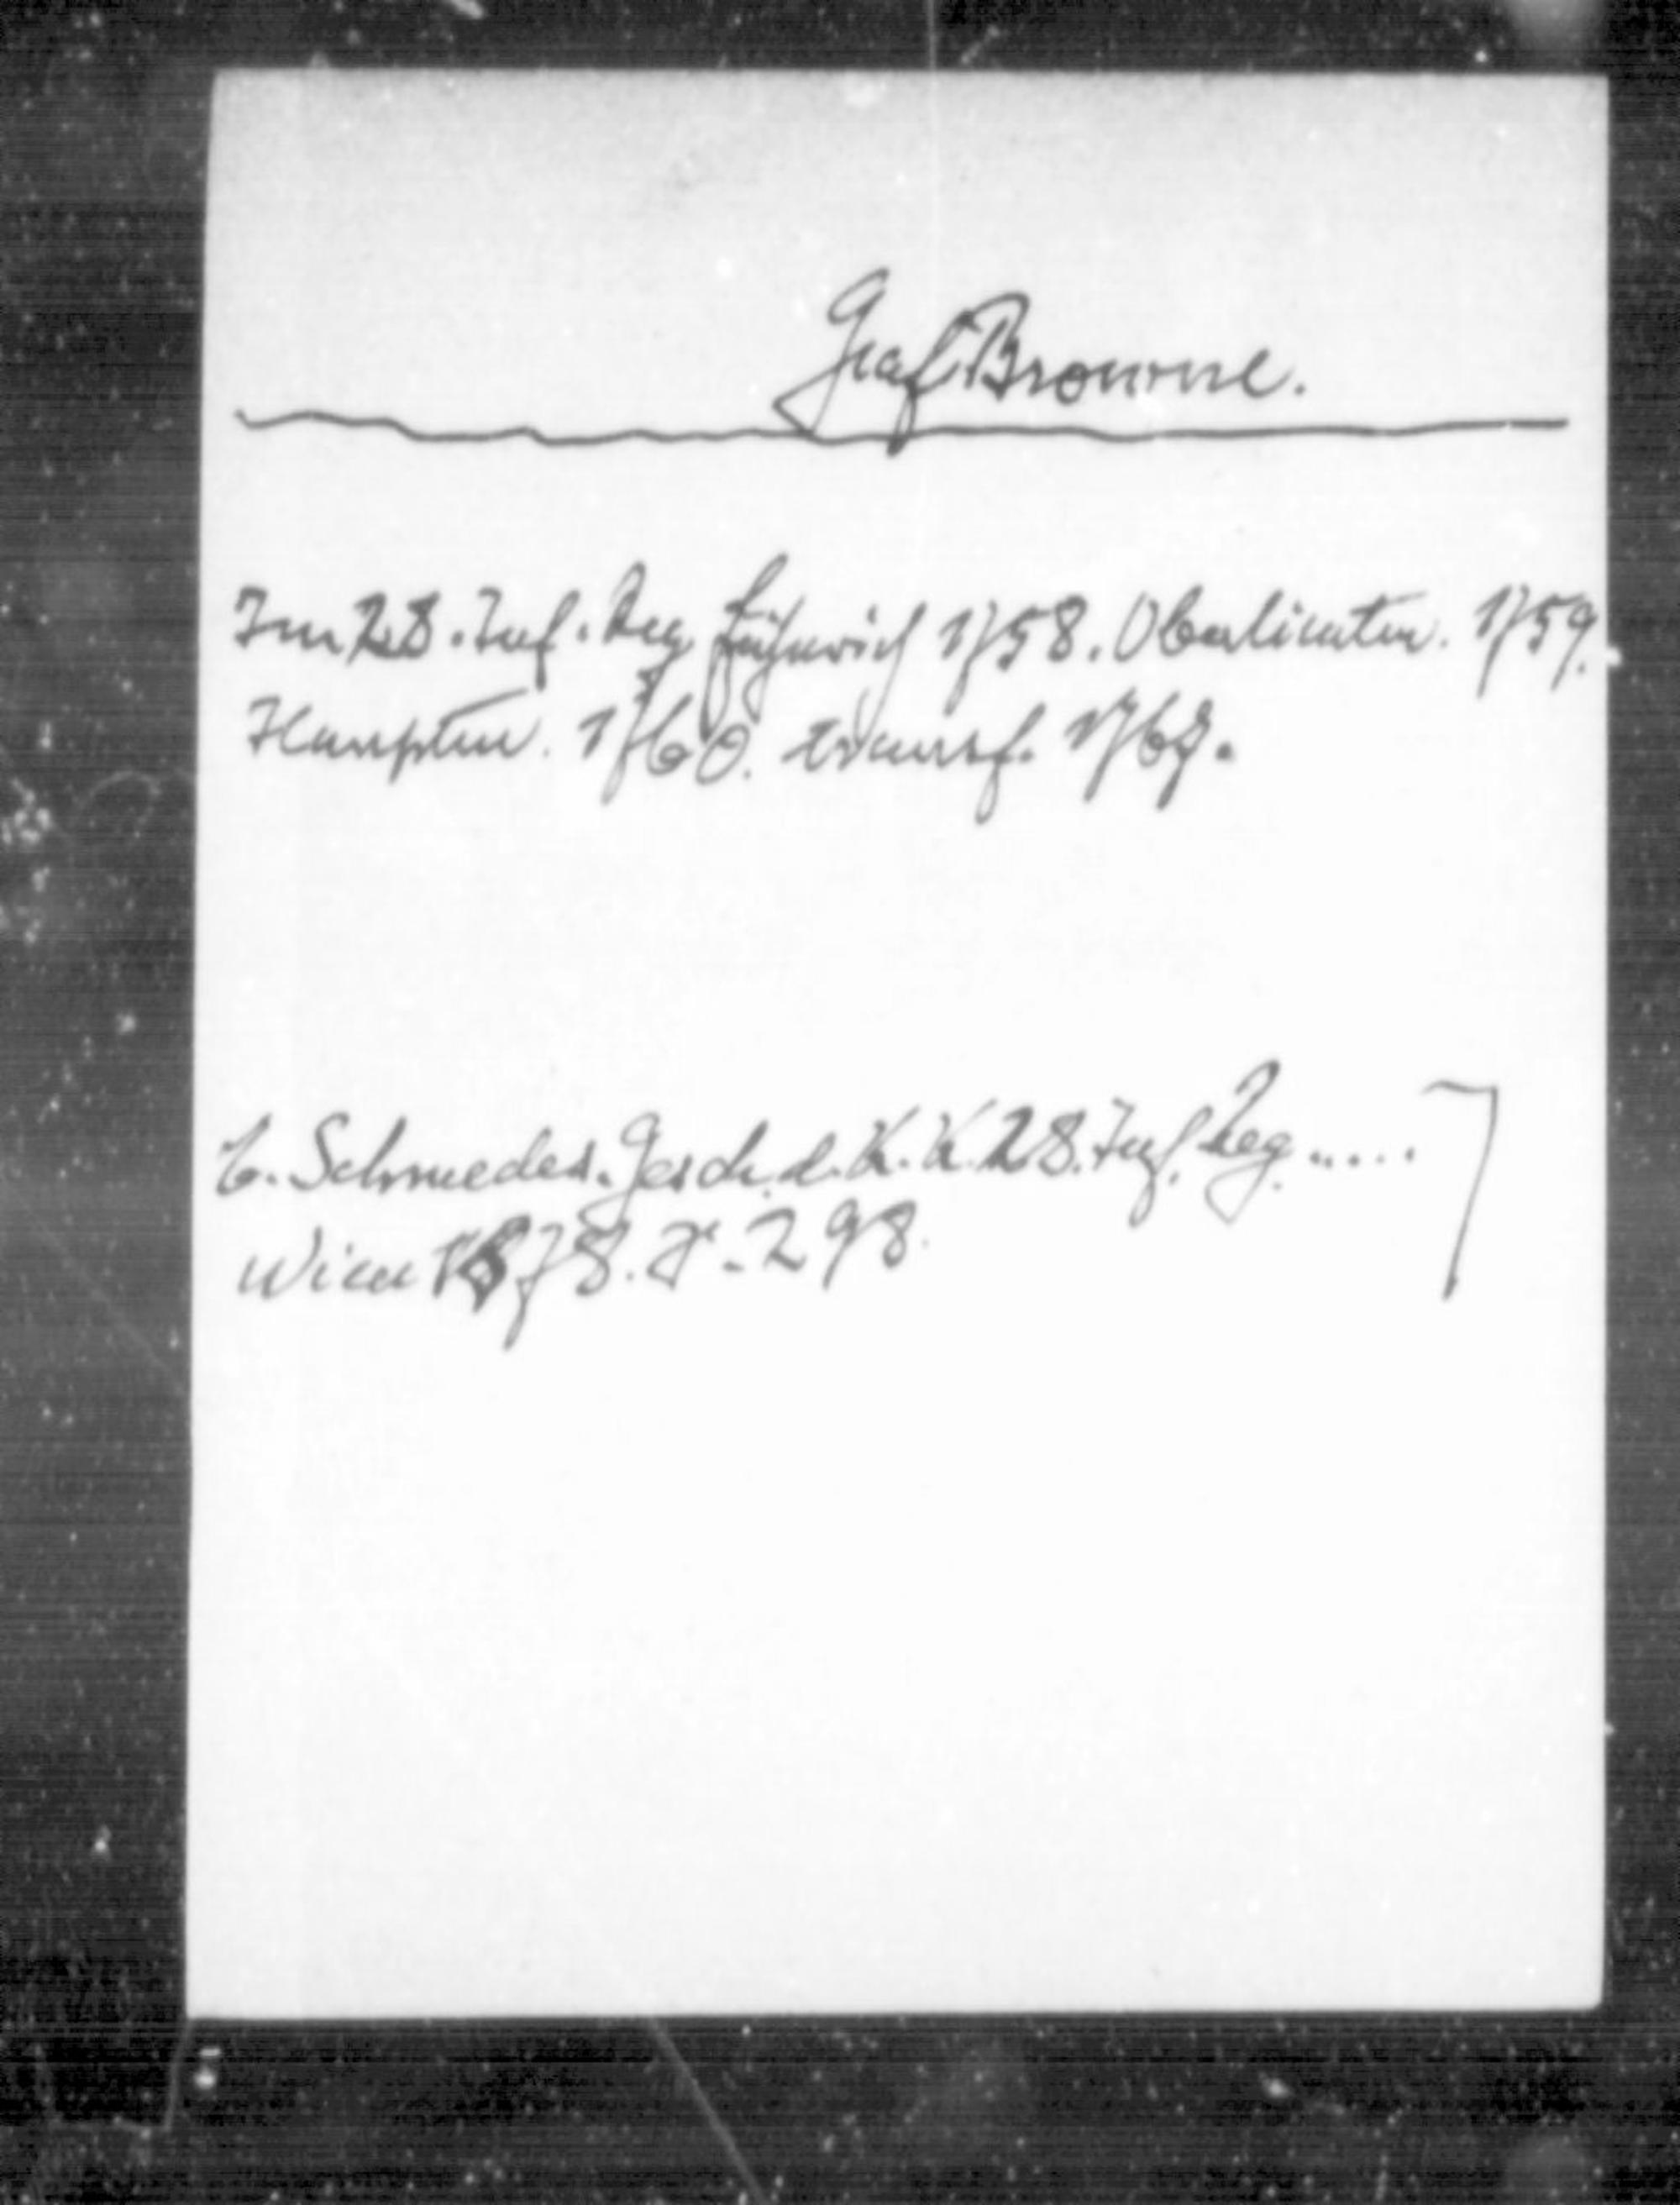 Graf Browne.
Im 28. Inf. Reg. Fähnrich 1758. Oberlieuten. 1759.
Hauptm. 1760. transf.
E. Schmedes. Gesch. d. K. K. 28. Inf. Reg. .....
Wien 1878. S. 298.